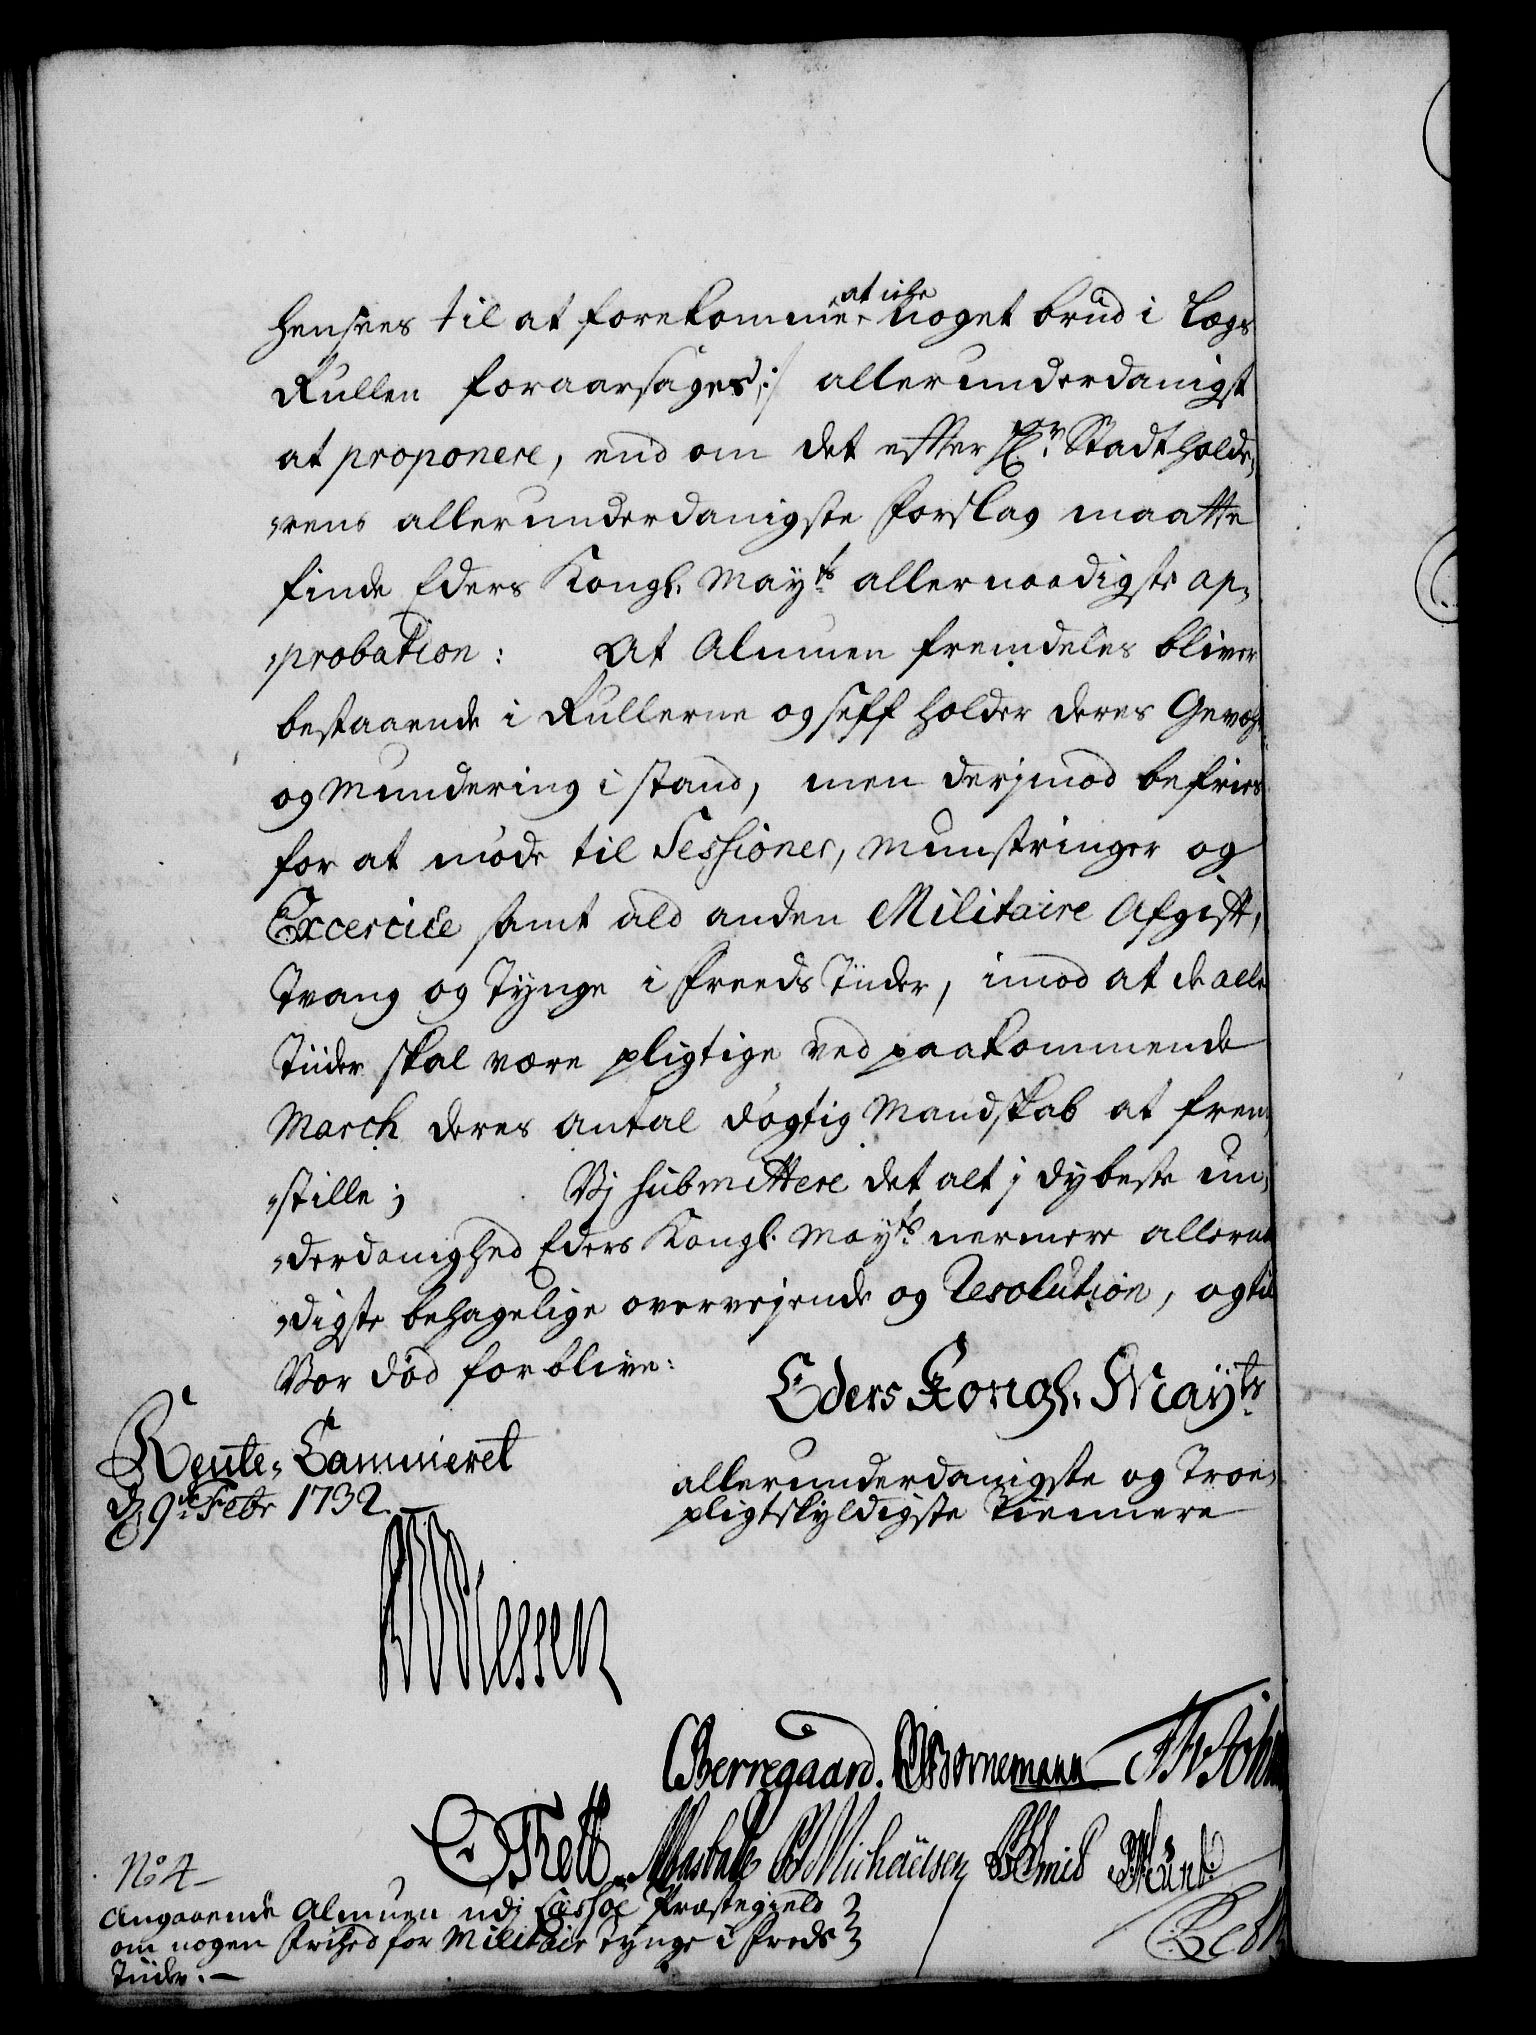 hensees til at forekomme at iche noget brud i Lægs
Rullen foraarsages :/ allerunderdanigst
at proponere, end om det efter Hr. Stadtholde,
„rens allerunderdanigste forslag maatte
finde Eders Kongl. Mayts allernaadigste ap„
„probation: At Almuen fremdeles bliver
bestaaende i Rullerne og self holder deres Gevæhr
og Mundering i stand, men derjmod befries
for at møde til Sessioner, Munstringer og
Excercice samt ald anden Militaire Afgift,
Tvang og Tynge i freeds Tiider, imod at de alle
Tiider skal være pligtige ved paakommende
March deres antal dygtig Mandskab at frem„
„stille; Vj submittere det alt j dybeste un„
„derdanighed Eders Kongl. Mayts nermere allernaa
„digste behagelige overvejende og Resolution, og til
Vor død forblive:
Eders Kongl. Mayts
Rente„ Cammeret
d. 9de Febr 1732.
allerunderdanigste og Troe„
pligtskyldigste Tiennere
Berregaard. Bornemann
Michaelsen
No 4
Angaaende Almuen udj Læssøe Præstegield
om nogen frihed for Militair Tynge i freds
Tiider.